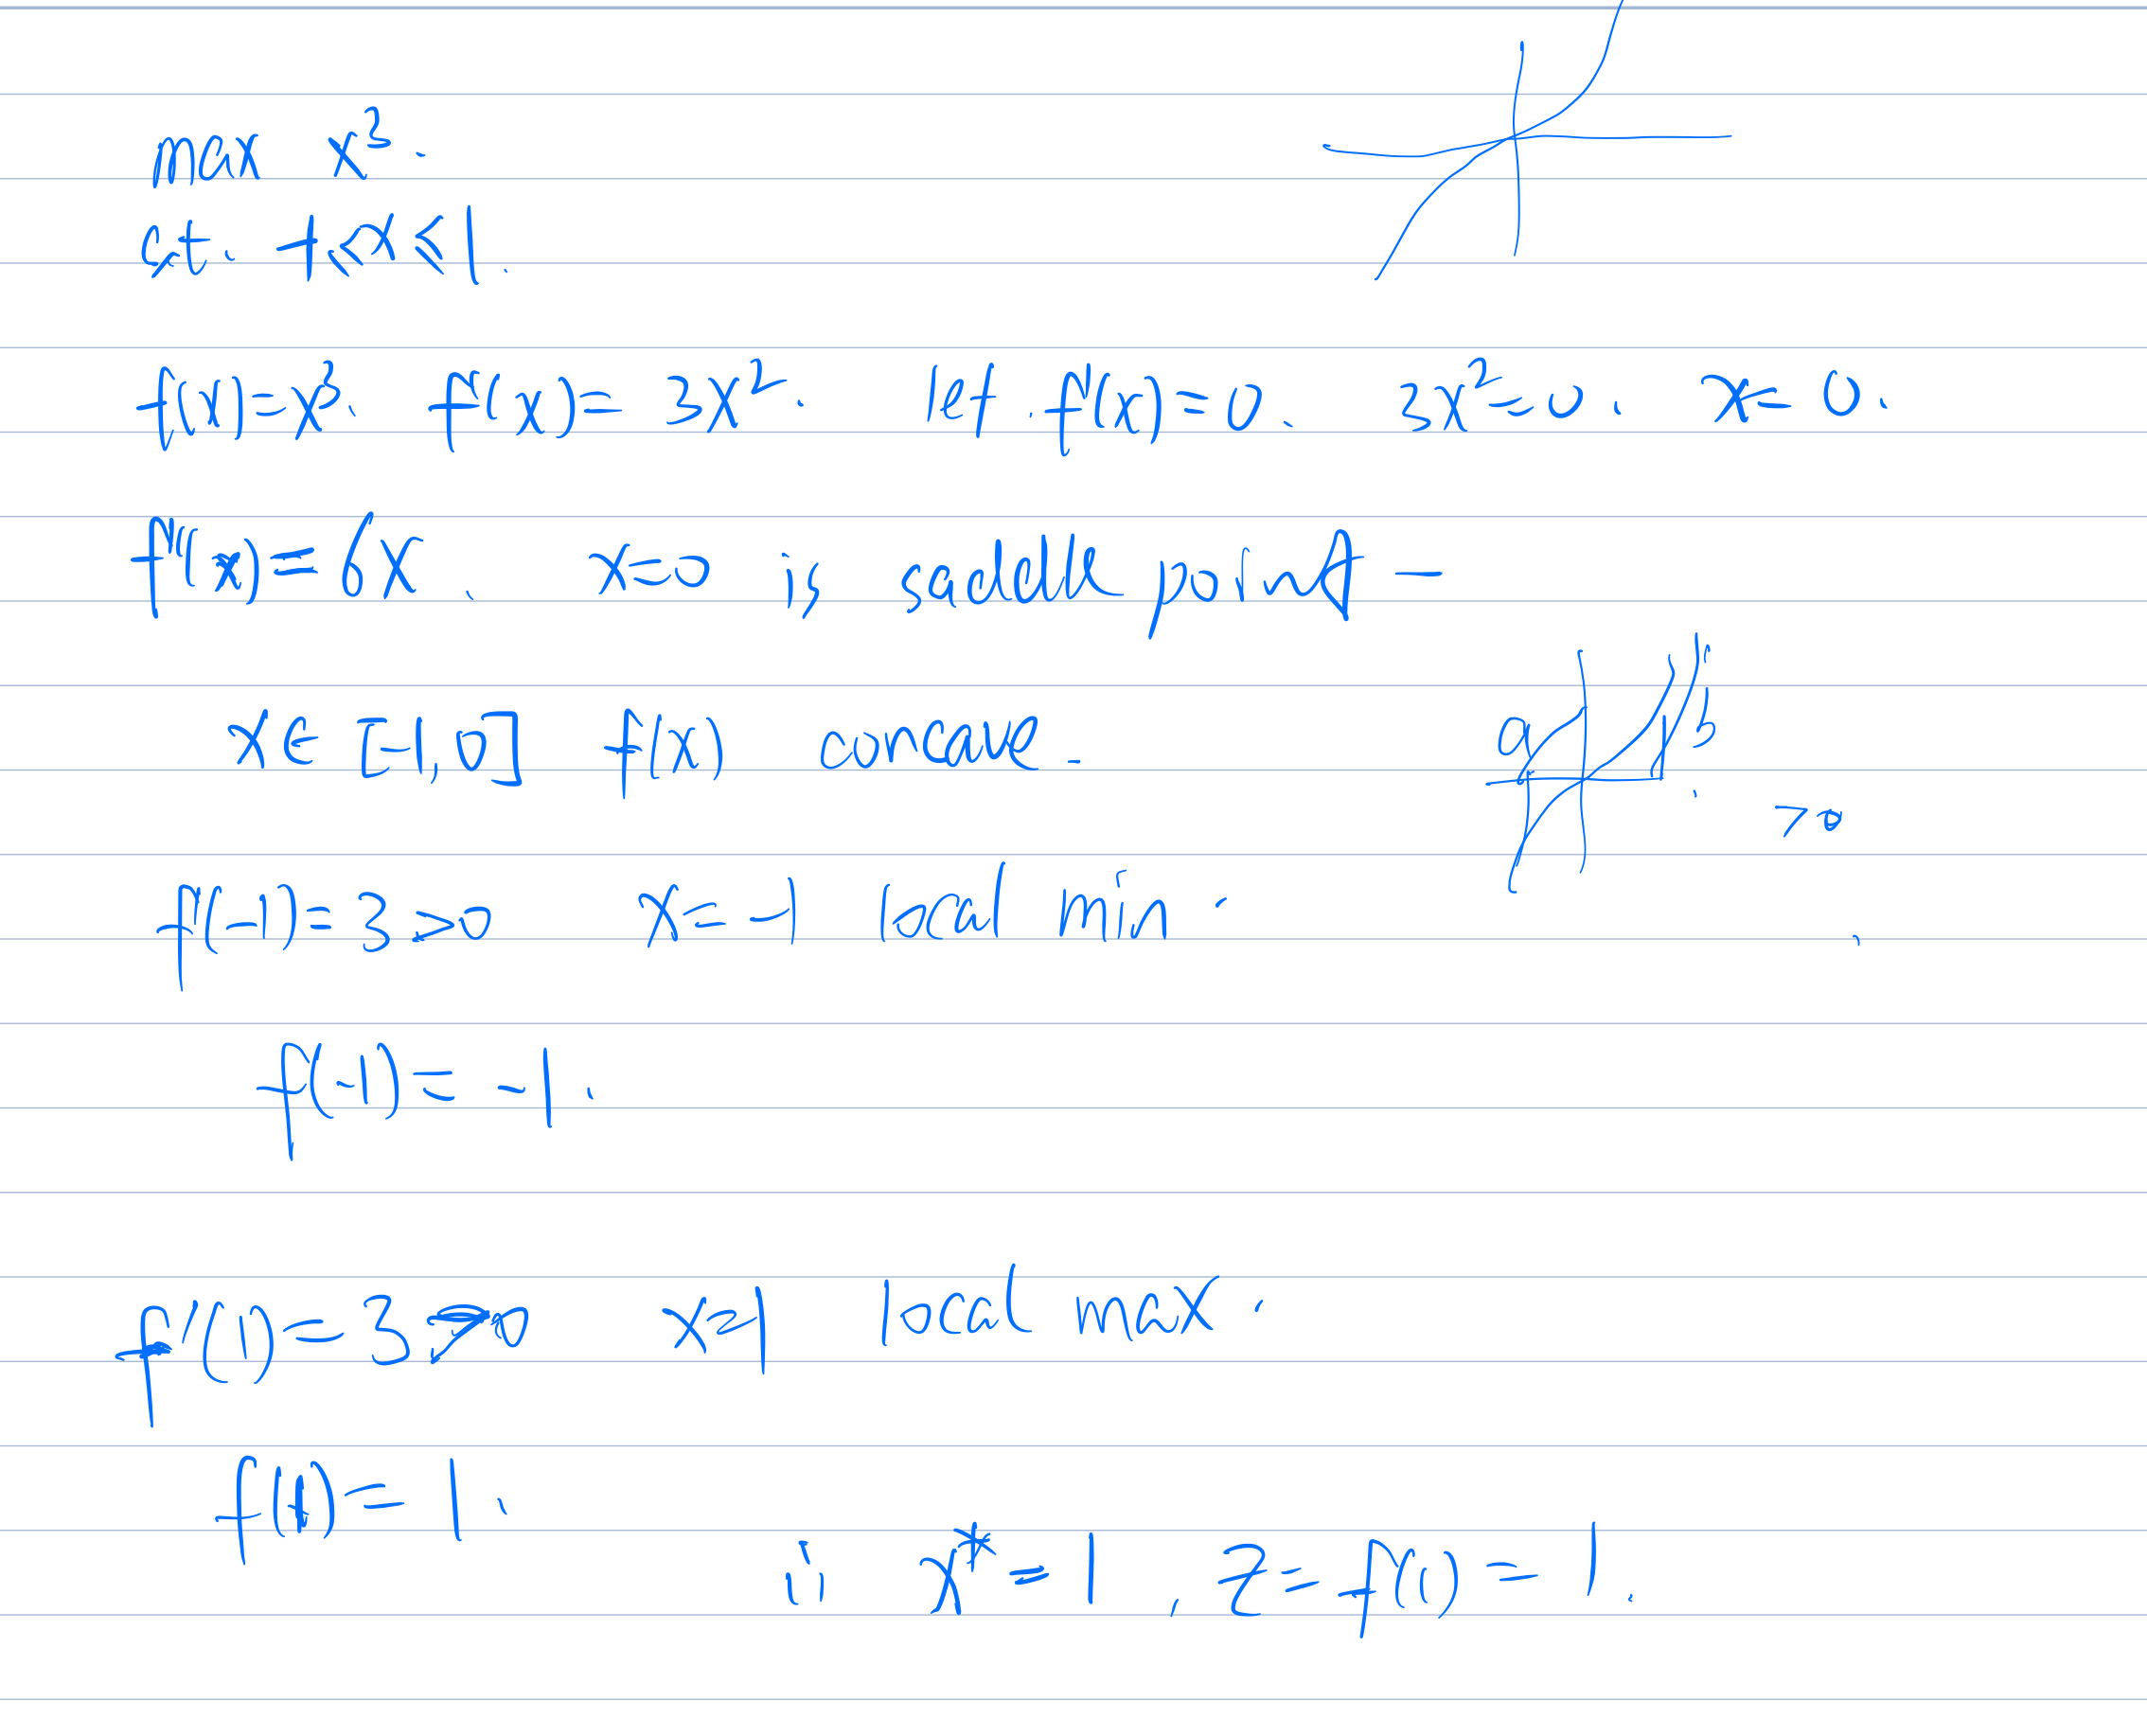 max x³.
s.t. -1≤x≤1.
f(x)=x³. f'(x)=3x². let f'(x)=0. 3x²=0. x=0.
f''(x)=6x. x=0 is saddle point
x∈[-1,0] f(x) concave.
f'(-1)=3≥0 x=-1 local min.
f(-1)=-1.
f'(1)=3≥0 x=1 local max.
f(1)=1.
∴ x*=1, z=f(1)=1.